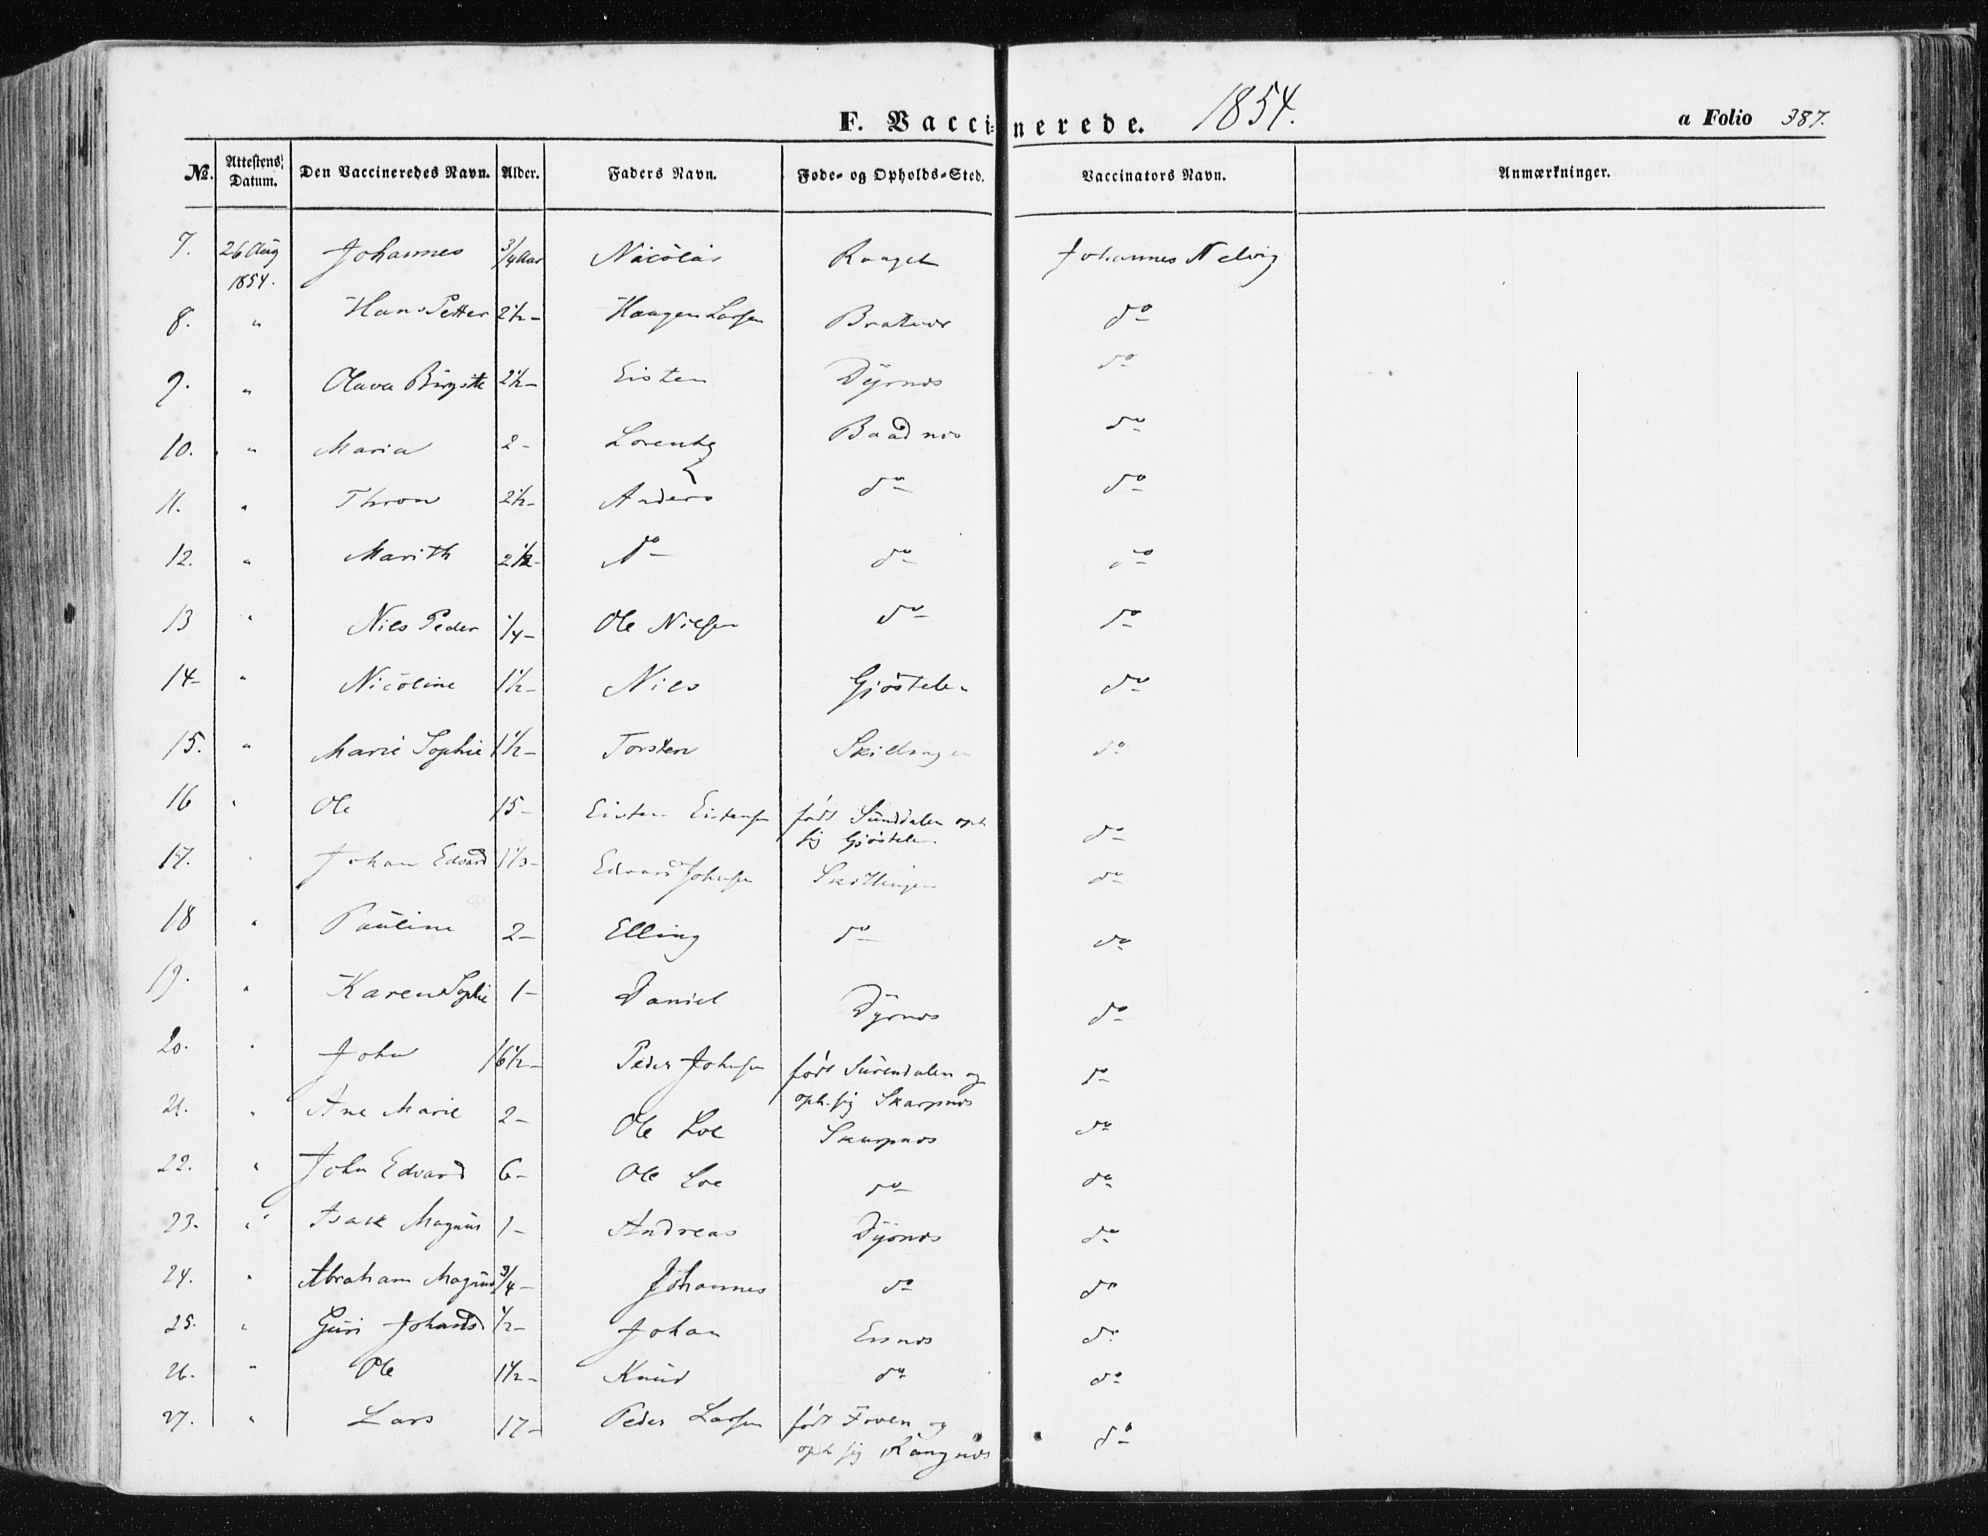 F. Vaccinerede. 1854. a Folio 387.
No. Attestens Datum. Den Vaccineredes Navn. Alder. Faders Navn. Føde- og Opholds-Sted. Vaccinators Navn. Anmærkninger.
7. 26 Aug 1854. Johannes 3/4 Aar Nicolai Johannes Nelvig
8. " Hans Petter 2 1/2 - Haagen Larsen do
9. " Olava 2 1/2 - Eisten Dyrnes do
10. " Maria 2 - Lorentz Baadnes do
11. " Thron 2 1/2 - Anders do do
12. " Marith 2 1/2 - do do do
13 " Nils Peder 1/4 - Ole Nilsen do do
14 - " Nicoline 1 1/2 - Nils Gjøstelen do
15. " Marie Sophie 1 1/2 - Torsten Skidlingen do
16 " Ole 15 - Eisten Eistensen født Sunddalen oph.
sig Gjøstelen. do
17. " Johan Edvard 1 1/2 - Edvard Johnsen do
18 " Pauline 2 - Elling do do
19. " Karen Sophie 1 - Daniel Dyrnes do
20. " John 16 1/2 - Peder Johnsen født Surendalen og
oph. sig Skarpnes do
21. " Ane Marie 2 - Ole Loe Skarpnes do
22. " John Edvard 6 - Ole Loe do do
23. " Isak Magnus 1 - Andreas Dyrnes do
24. " Abraham Magnus 3/4 - Johannes do do
25. " Guri 1/2 - Johan Ersnes do
26. " Ole 1 1/2 - Knud do do
27. " Lars 17 - Peder Larsen født Foven og
oph. sig Rangnes do